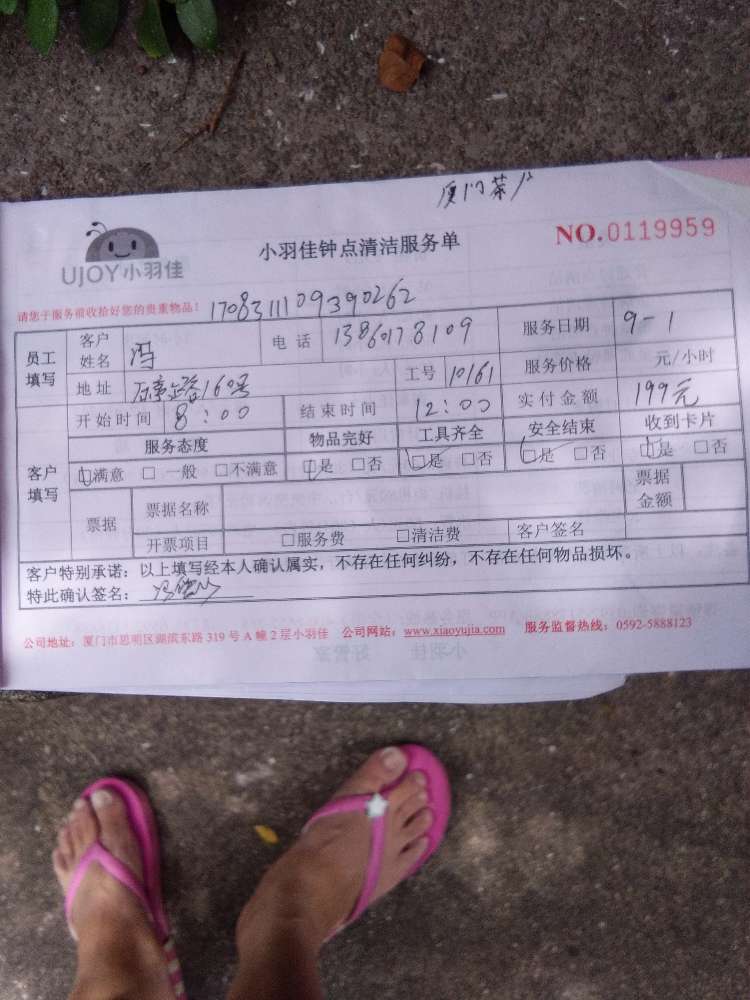 厦门茶厂
UJOY小羽佳 小羽佳钟点清洁服务单 NO.0119959
请您于服务前收拾好您的贵重物品! 170831109390262
员工填写 客户姓名 冯 电话 13860178109 服务日期 9-1
地址 160号 工号 10161 服务价格 元/小时
客户填写 开始时间 8:00 结束时间 12:00 实付金额 199元
服务态度 物品完好 工具齐全 安全结束 收到卡片
□满意 □一般 □不满意 □是 □否 □是 □否 □是 □否 □是 □否
票据 票据名称 票据金额
开票项目 □服务费 □清洁费 客户签名
客户特别承诺：以上填写经本人确认属实，不存在任何纠纷，不存在任何物品损坏。
特此确认签名：
公司地址：厦门市思明区湖滨东路 319 号 A 幢 2 层小羽佳 公司网站：www.xiaoyujia.com 服务监督热线：0592-5888123